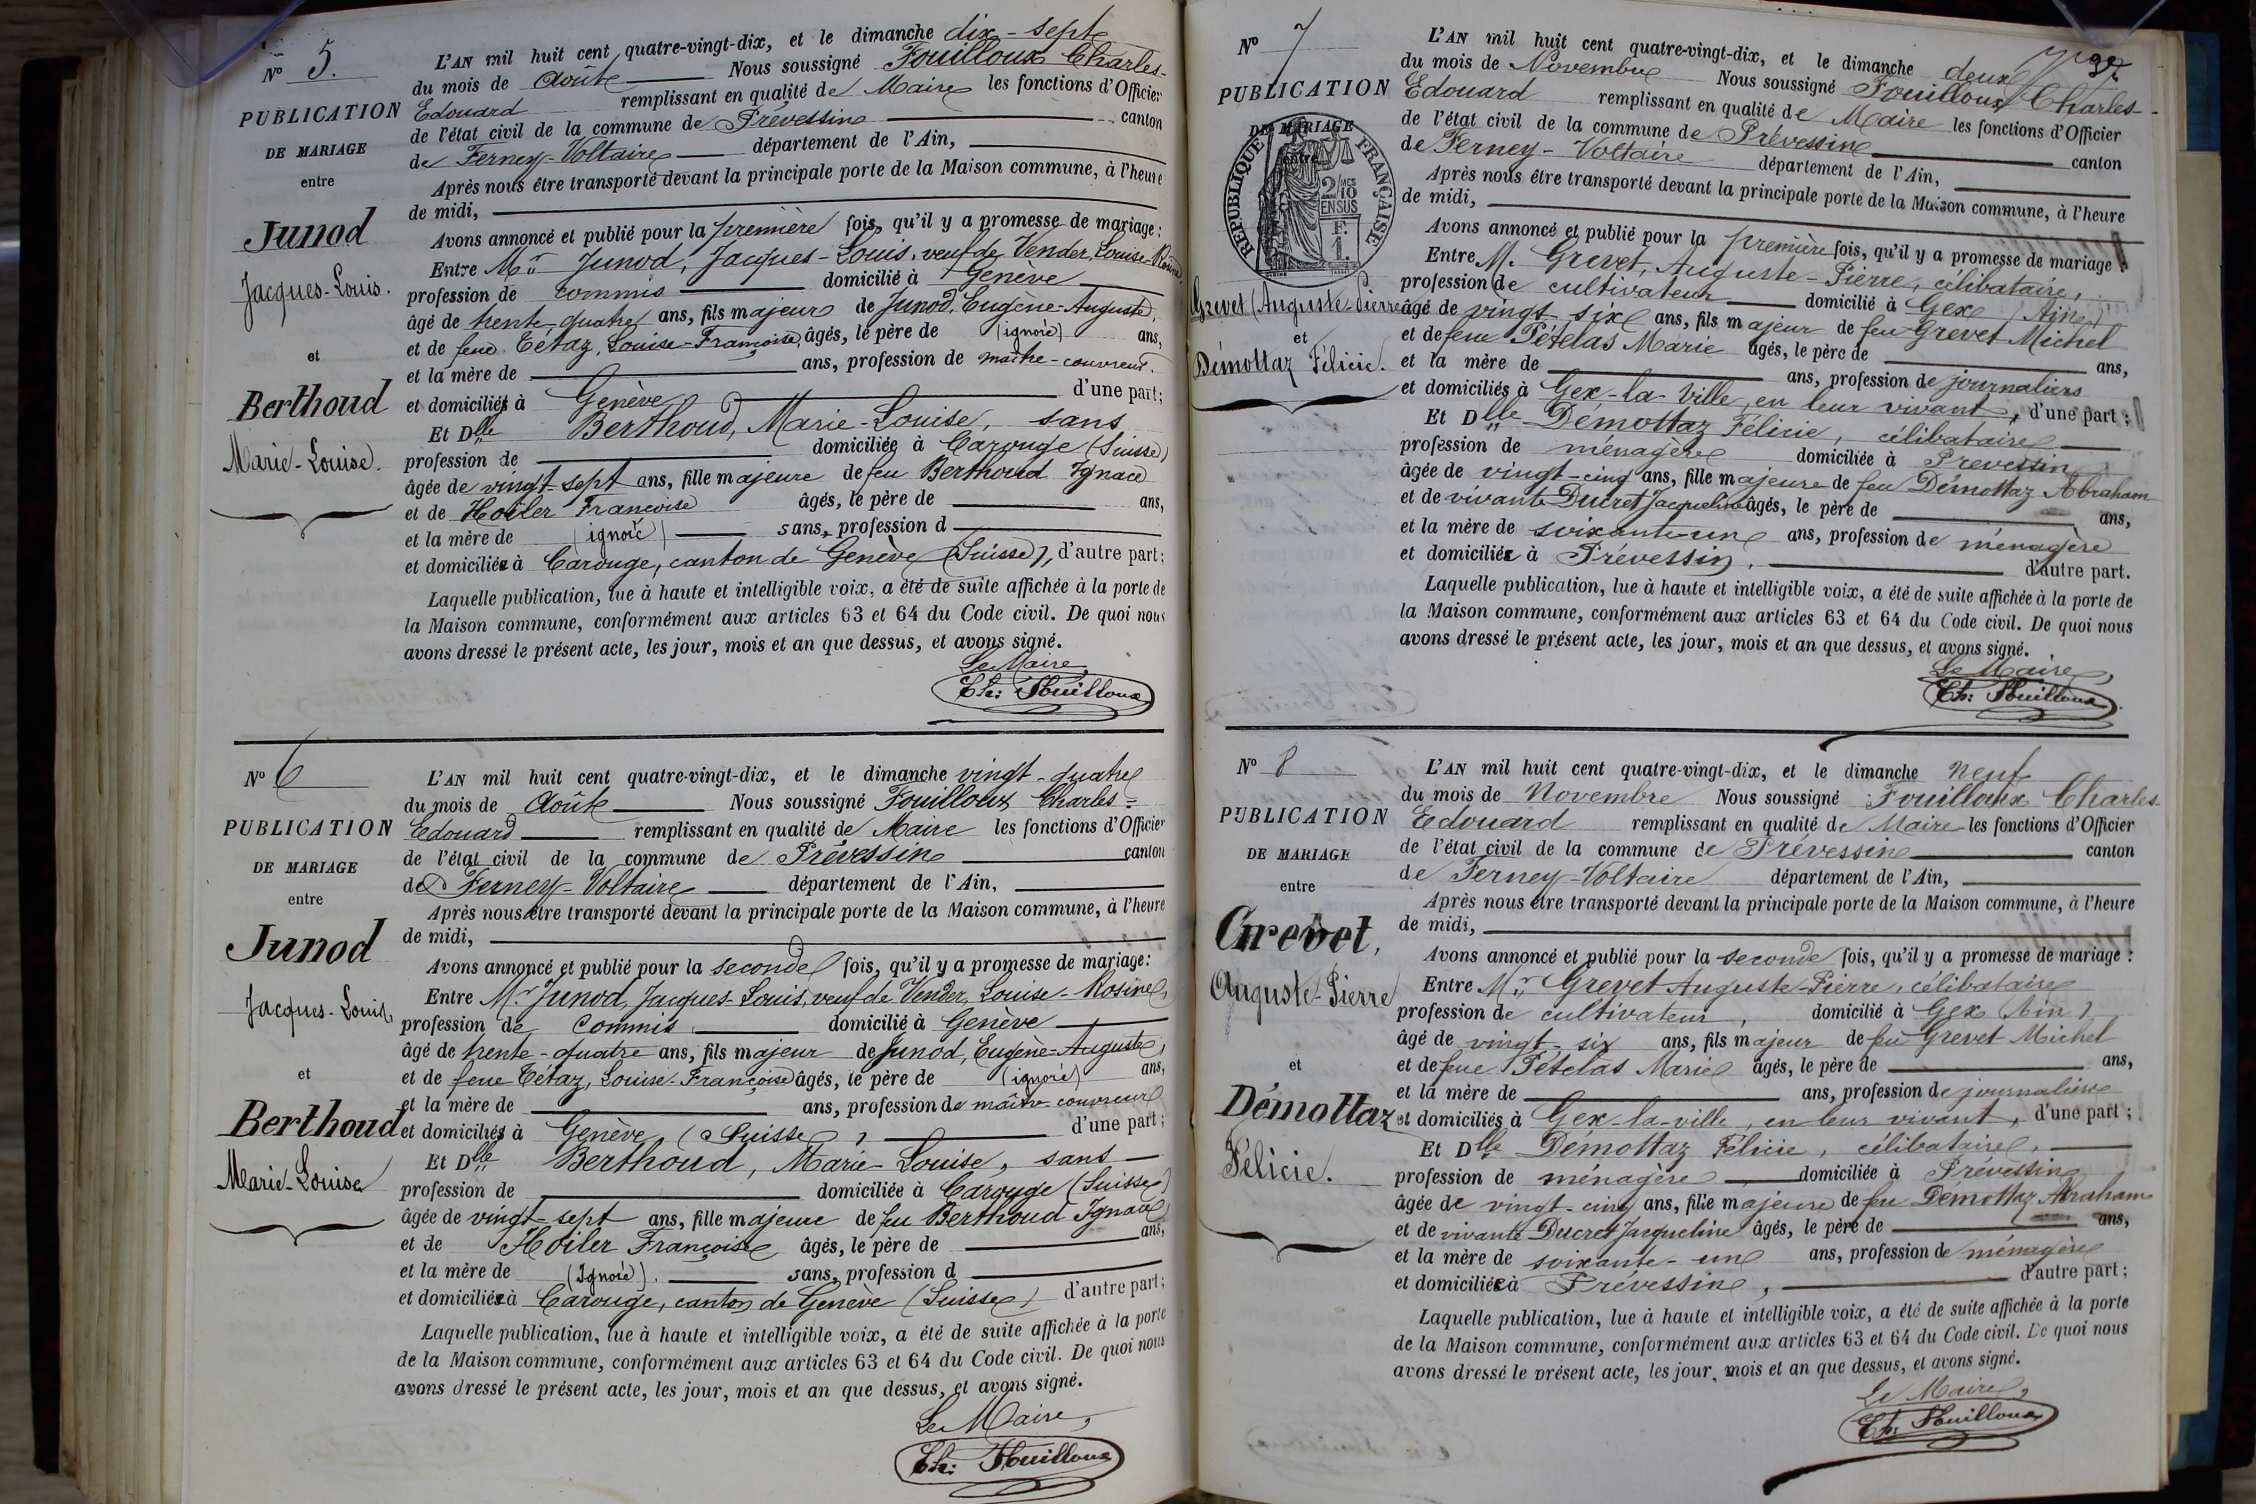 N° 5.
PUBLICATION
DE MARIAGE
entre
Junod
Jacques-Louis.
et
Berthoud
Marie-Louise.
L'AN mil huit cent quatre-vingt-dix, et le dimanche dix-sept
du mois de Août Nous soussigné Fouilloux Charles-
Edouard remplissant en qualité de Maire les fonctions d'Officier
de l'état civil de la commune de Prévessin canton
de Ferney-Voltaire département de l'Ain,
Après nous être transporté devant la principale porte de la Maison commune, à l'heure
de midi,
Avons annoncé et publié pour la première fois, qu'il y a promesse de mariage:
Entre Mr Junod, Jacques-Louis, veuf de Vender, Louise-Rosine
profession de commis domicilié à Genève
âgé de trente-quatre ans, fils majeur de Junod, Eugène-Auguste,
et de feue Tétaz, Louise-Françoise, âgés, le père de (ignoré) ans,
et la mère de ans, profession de maître-couvreur.
et domiciliés à Genève d'une part;
Et Dlle Berthoud, Marie-Louise, sans
profession de domiciliée à Carouge (Suisse)
âgée de vingt-sept ans, fille majeure de feu Berthoud Ignace
et de Hoiler Françoise âgés, le père de ans,
et la mère de (ignoré) sans, profession d
et domiciliée à Carouge, canton de Genève (Suisse), d'autre part;
Laquelle publication, lue à haute et intelligible voix, a été de suite affichée à la porte de
la Maison commune, conformément aux articles 63 et 64 du Code civil. De quoi nous
avons dressé le présent acte, les jour, mois et an que dessus, et avons signé.
Le Maire
Ch: Fouilloux
N° 6
PUBLICATION
DE MARIAGE
entre
Junod
Jacques-Louis,
et
Berthoud
Marie-Louise
L'AN mil huit cent quatre-vingt-dix, et le dimanche vingt-quatre
du mois de Août Nous soussigné Fouilloux Charles-
Edouard remplissant en qualité de Maire les fonctions d'Officier
de l'état civil de la commune de Prévessin canton
de Ferney-Voltaire département de l'Ain,
Après nous être transporté devant la principale porte de la Maison commune, à l'heure
de midi,
Avons annoncé et publié pour la seconde fois, qu'il y a promesse de mariage:
Entre Mr Junod, Jacques-Louis, veuf de Vender, Louise-Rosine,
profession de commis domicilié à Genève
âgé de trente-quatre ans, fils majeur de Junod, Eugène-Auguste,
et de feue Tétaz, Louise-Françoise âgés, le père de (ignoré) ans,
et la mère de ans, profession de maître-couvreur
et domiciliés à Genève, (Suisse), d'une part;
Et Dlle Berthoud, Marie-Louise, sans
profession de domiciliée à Carouge (Suisse)
âgée de vingt-sept ans, fille majeure de feu Berthoud Ignace
et de Hoiler Françoise âgés, le père de ans,
et la mère de (Ignoré). sans, profession d
et domiciliée à Carouge, canton de Genève (Suisse) d'autre part;
Laquelle publication, lue à haute et intelligible voix, a été de suite affichée à la porte
de la Maison commune, conformément aux articles 63 et 64 du Code civil. De quoi nous
avons dressé le présent acte, les jour, mois et an que dessus, et avons signé.
Le Maire,
Ch: Fouilloux
N° 7
PUBLICATION
DE MARIAGE
entre
RÉPUBLIQUE FRANÇAISE
2/10 MES
EN SUS
F.
1.
Grevet (Auguste-Pierre
et
Démottaz Félicie.
37
L'AN mil huit cent quatre-vingt-dix, et le dimanche deux
du mois de Novembre Nous soussigné Fouilloux Charles-
Edouard remplissant en qualité de Maire les fonctions d'Officier
de l'état civil de la commune de Prévessin canton
de Ferney-Voltaire département de l'Ain,
Après nous être transporté devant la principale porte de la Maison commune, à l'heure
de midi,
Avons annoncé et publié pour la première fois, qu'il y a promesse de mariage:
Entre M. Grevet, Auguste-Pierre, célibataire,
profession de cultivateur domicilié à Gex (Ain)
âgé de vingt-six ans, fils majeur de feu Grevet Michel
et de feue Pételas Marie âgés, le père de ans,
et la mère de ans, profession de journaliers
et domiciliés à Gex-la-Ville, en leur vivant, d'une part;
Et Dlle Démottaz Félicie, célibataire
profession de ménagère domiciliée à Prévessin
âgée de vingt-cinq ans, fille majeure de feu Démottaz Abraham
et de vivante Ducret Jacqueline âgés, le père de ans,
et la mère de soixante-un ans, profession de ménagère
et domiciliée à Prévessin, d'autre part.
Laquelle publication, lue à haute et intelligible voix, a été de suite affichée à la porte de
la Maison commune, conformément aux articles 63 et 64 du Code civil. De quoi nous
avons dressé le présent acte, les jour, mois et an que dessus, et avons signé.
Le Maire,
Ch: Fouilloux
N° 8
PUBLICATION
DE MARIAGE
entre
Grevet,
Auguste-Pierre
et
Démottaz
Félicie.
L'AN mil huit cent quatre-vingt-dix, et le dimanche neuf
du mois de Novembre Nous soussigné Fouilloux Charles-
Edouard remplissant en qualité de Maire les fonctions d'Officier
de l'état civil de la commune de Prévessin canton
de Ferney-Voltaire département de l'Ain,
Après nous être transporté devant la principale porte de la Maison commune, à l'heure
de midi,
Avons annoncé et publié pour la seconde fois, qu'il y a promesse de mariage:
Entre Mr Grevet Auguste-Pierre, célibataire
profession de cultivateur, domicilié à Gex (Ain),
âgé de vingt-six ans, fils majeur de feu Grevet Michel
et de feue Pételas Marie âgés, le père de ans,
et la mère de ans, profession de journaliers
et domiciliés à Gex-la-ville, en leur vivant, d'une part;
Et Dlle Démottaz Félicie, célibataire,
profession de ménagère domiciliée à Prévessin
âgée de vingt-cinq ans, fille majeure de feu Démottaz Abraham
et de vivante Ducret Jacqueline âgés, le père de ans,
et la mère de soixante-un ans, profession de ménagère
et domiciliée à Prévessin, d'autre part;
Laquelle publication, lue à haute et intelligible voix, a été de suite affichée à la porte
de la Maison commune, conformément aux articles 63 et 64 du Code civil. De quoi nous
avons dressé le présent acte, les jour, mois et an que dessus, et avons signé.
Le Maire,
Ch: Fouilloux